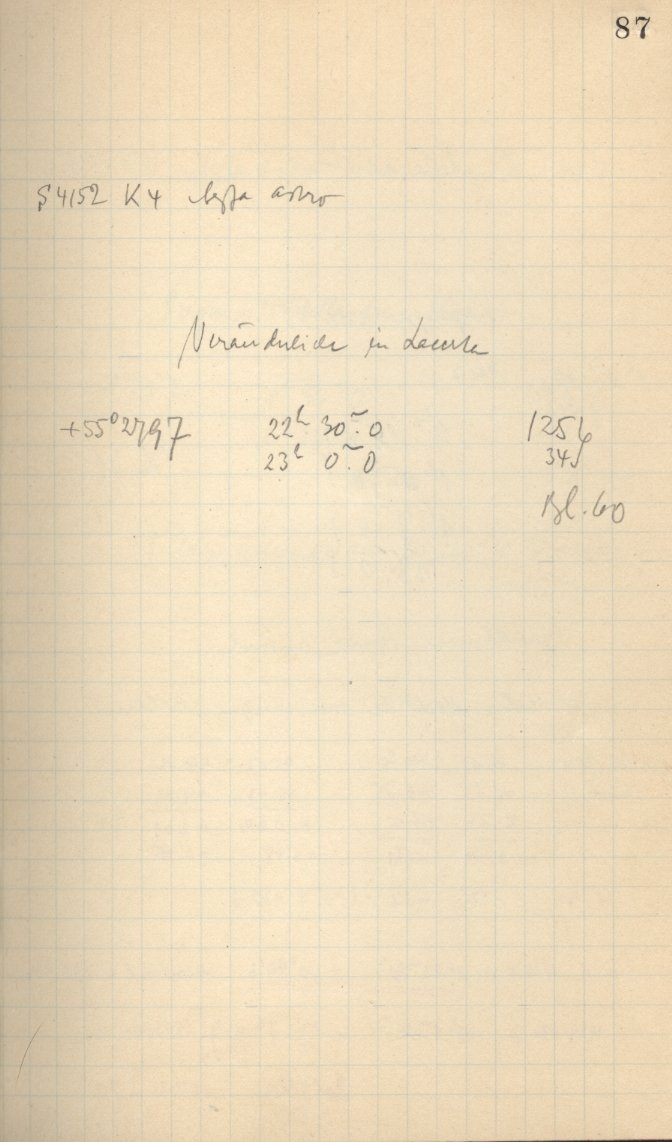 87
S 4152 K4 astro
Veränderliche in Lacerta
+55° 2797 22h 30m.0 1254
23h 0m.0 345
Bl. 60